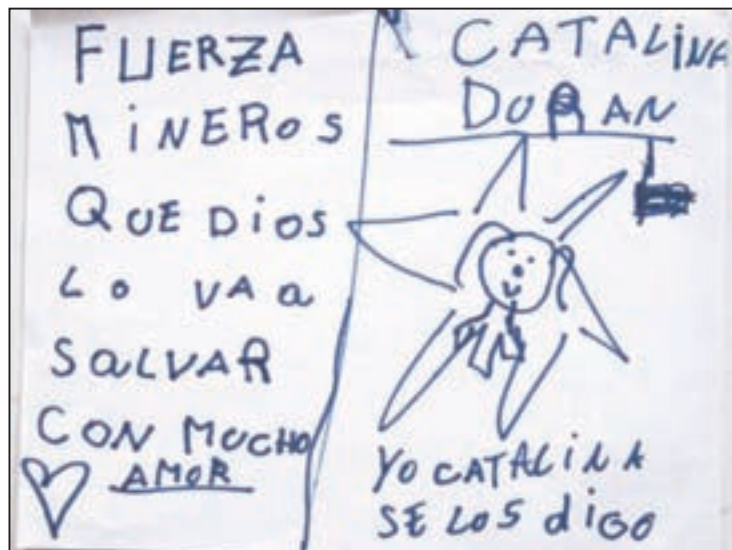 FUERZA
MiNEROS
QUE Dios
Lo VA a
SaLVAR
CON MUCHO
AMOR
CATALiNA
DURAN
YO CATALiNA
SE LOS diGO